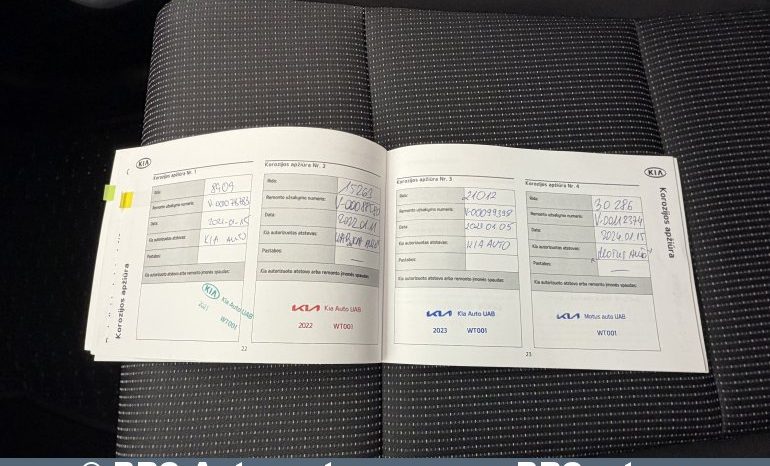 KIA
Korozijos apžiūra
Korozijos apžiūra Nr. 1
Rida: 8909
Remonto užsakymo numeris:
Data:
Kia autorizuotas atstovas: KIA AUTO
Pastabos:
Kia autorizuoto atstovo arba remonto įmonės spaudas:
KIA Kia Auto UAB
2021 WT001
22
Korozijos apžiūra Nr. 2
Rida: 15261
Remonto užsakymo numeris:
Data: 2022.01.11
Kia autorizuotas atstovas:
Pastabos: —
Kia autorizuoto atstovo arba remonto įmonės spaudas:
KIA Kia Auto UAB
2022 WT001
Korozijos apžiūra Nr. 3
Rida: 21012
Remonto užsakymo numeris: V-00099395
Data: 2023.01.05
Kia autorizuotas atstovas: KIA AUTO
Pastabos:
Kia autorizuoto atstovo arba remonto įmonės spaudas:
KIA Kia Auto UAB
2023 WT001
Korozijos apžiūra Nr. 4
Rida: 30 286
Remonto užsakymo numeris: V-00112374
Data: 2024.01.15
Kia autorizuotas atstovas: Motus Auto
Pastabos: —
Kia autorizuoto atstovo arba remonto įmonės spaudas:
KIA Motus auto UAB
WT001
23
KIA
Korozijos apžiūra